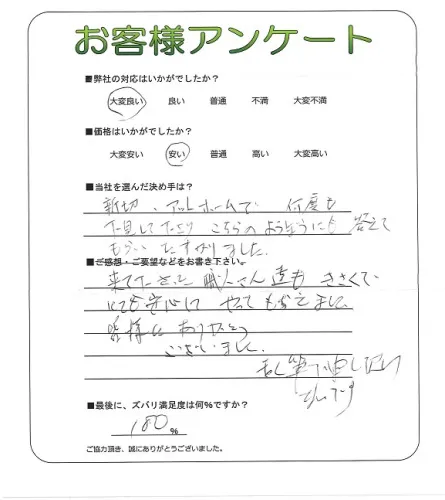 お客様アンケート
■弊社の対応はいかがでしたか?
大変良い 良い 普通 不満 大変不満
■価格はいかがでしたか?
大変安い 安い 普通 高い 大変高い
■当社を選んだ決め手は?
親切、アットホームで 何度も
下見して下さり こちらのようぼうにも 答えて
もらい たすかりました。
■ご感想・ご要望などをお書き下さい。
来て下さった 職人さん達も きさくで
とても安心して やって もらえました。
皆様に ありがとう
ございました。
■最後に、ズバリ満足度は何%ですか?
100%
ご協力頂き、誠にありがとうございました。